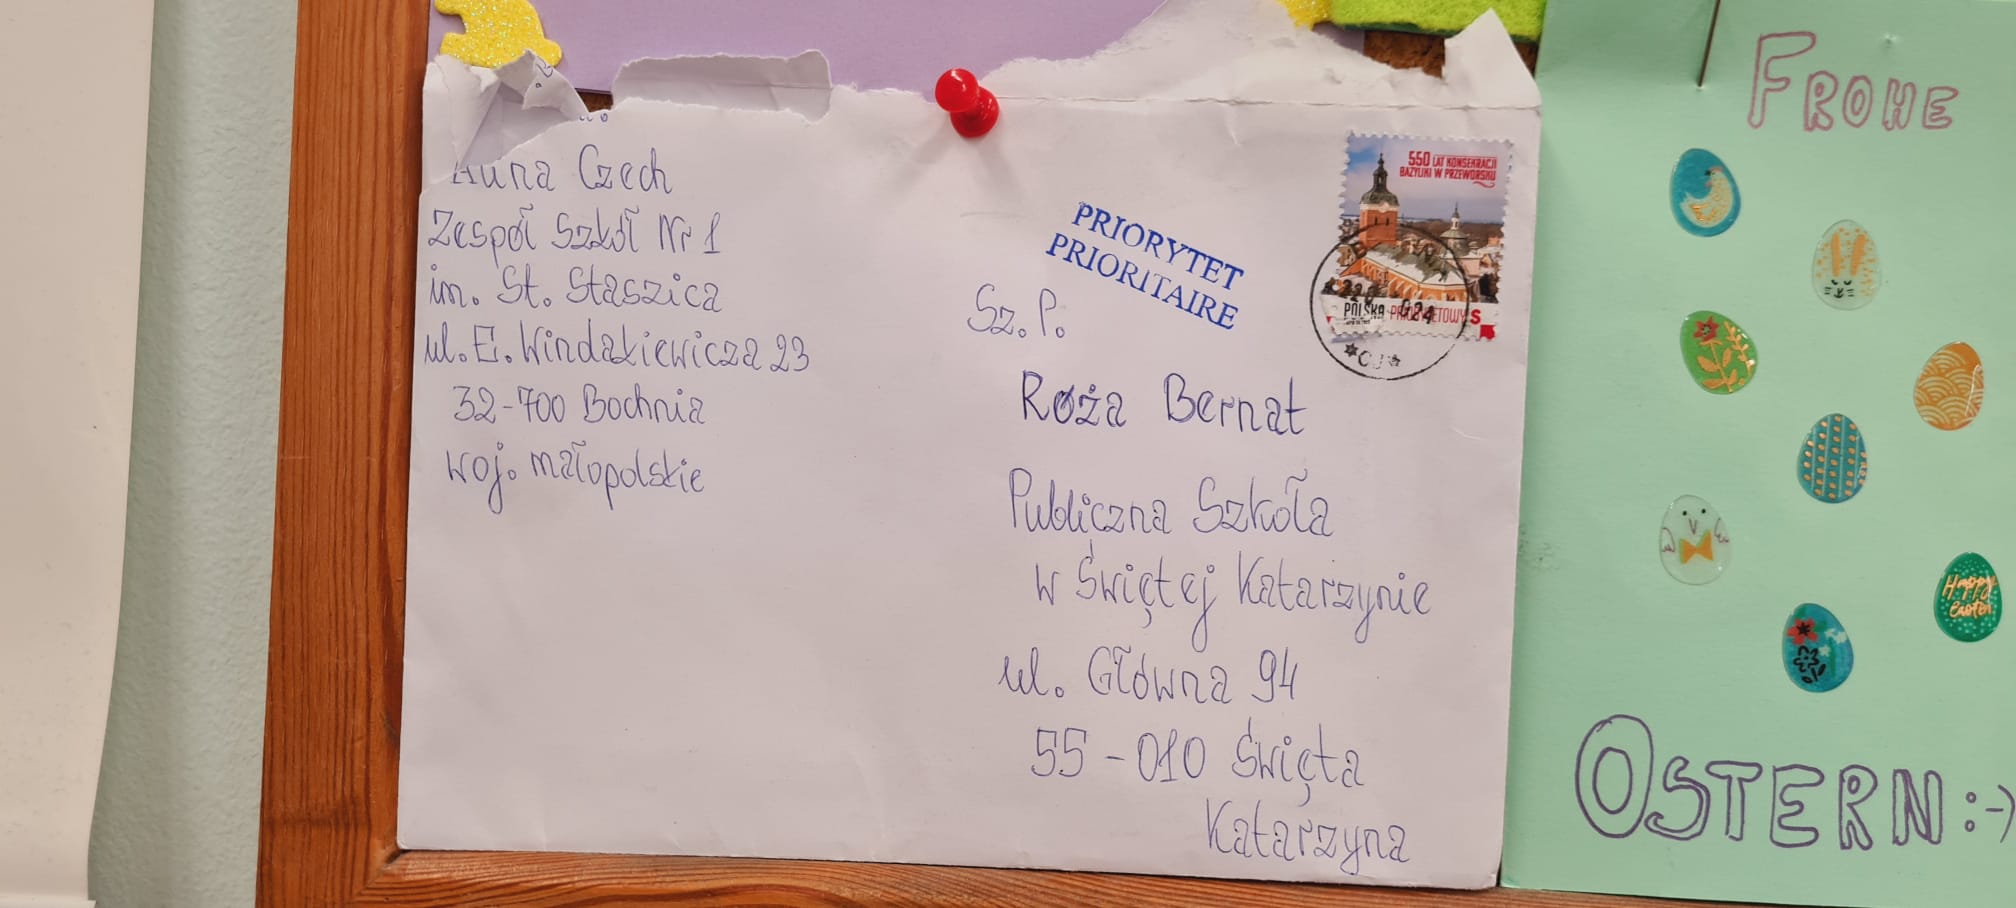 Anna Czech
Zespół Szkół Nr 1
im. St. Staszica
ul. E. Windakiewicza 23
32-700 Bochnia
woj. małopolskie
PRIORYTET
PRIORITAIRE
550 LAT KONSEKRACJI
BAZYLIKI W PRZEWORSKU
POLSKA PRIORYTETOWY S
Sz. P.
Róża Bernat
Publiczna Szkoła
w Świętej Katarzynie
ul. Główna 94
55-010 Święta
Katarzyna
FROHE
Happy
Easter
OSTERN :-)